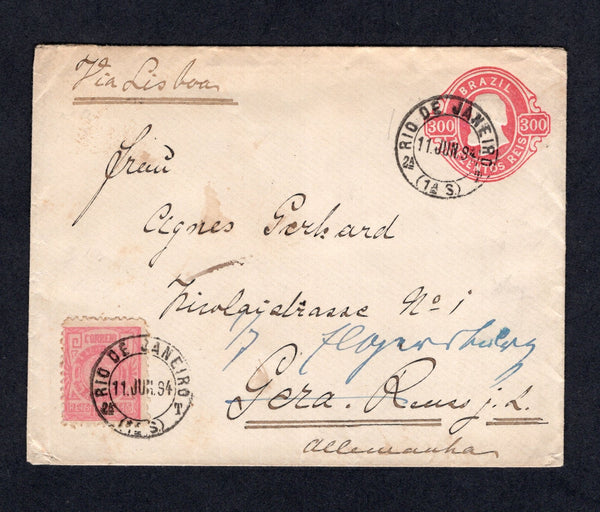 Via Lisboa
BRAZIL
300 300
RIO DE JANEIRO
11.JUN.94
2ª T
(1ª S.)
Frau
Agnes Gerhard
Nicolaistrasse No 1
Gera. Reuss j. L.
Allemanha
CORREIO
RIO DE JANEIRO
11.JUN.94
2ª T
(1ª S.)